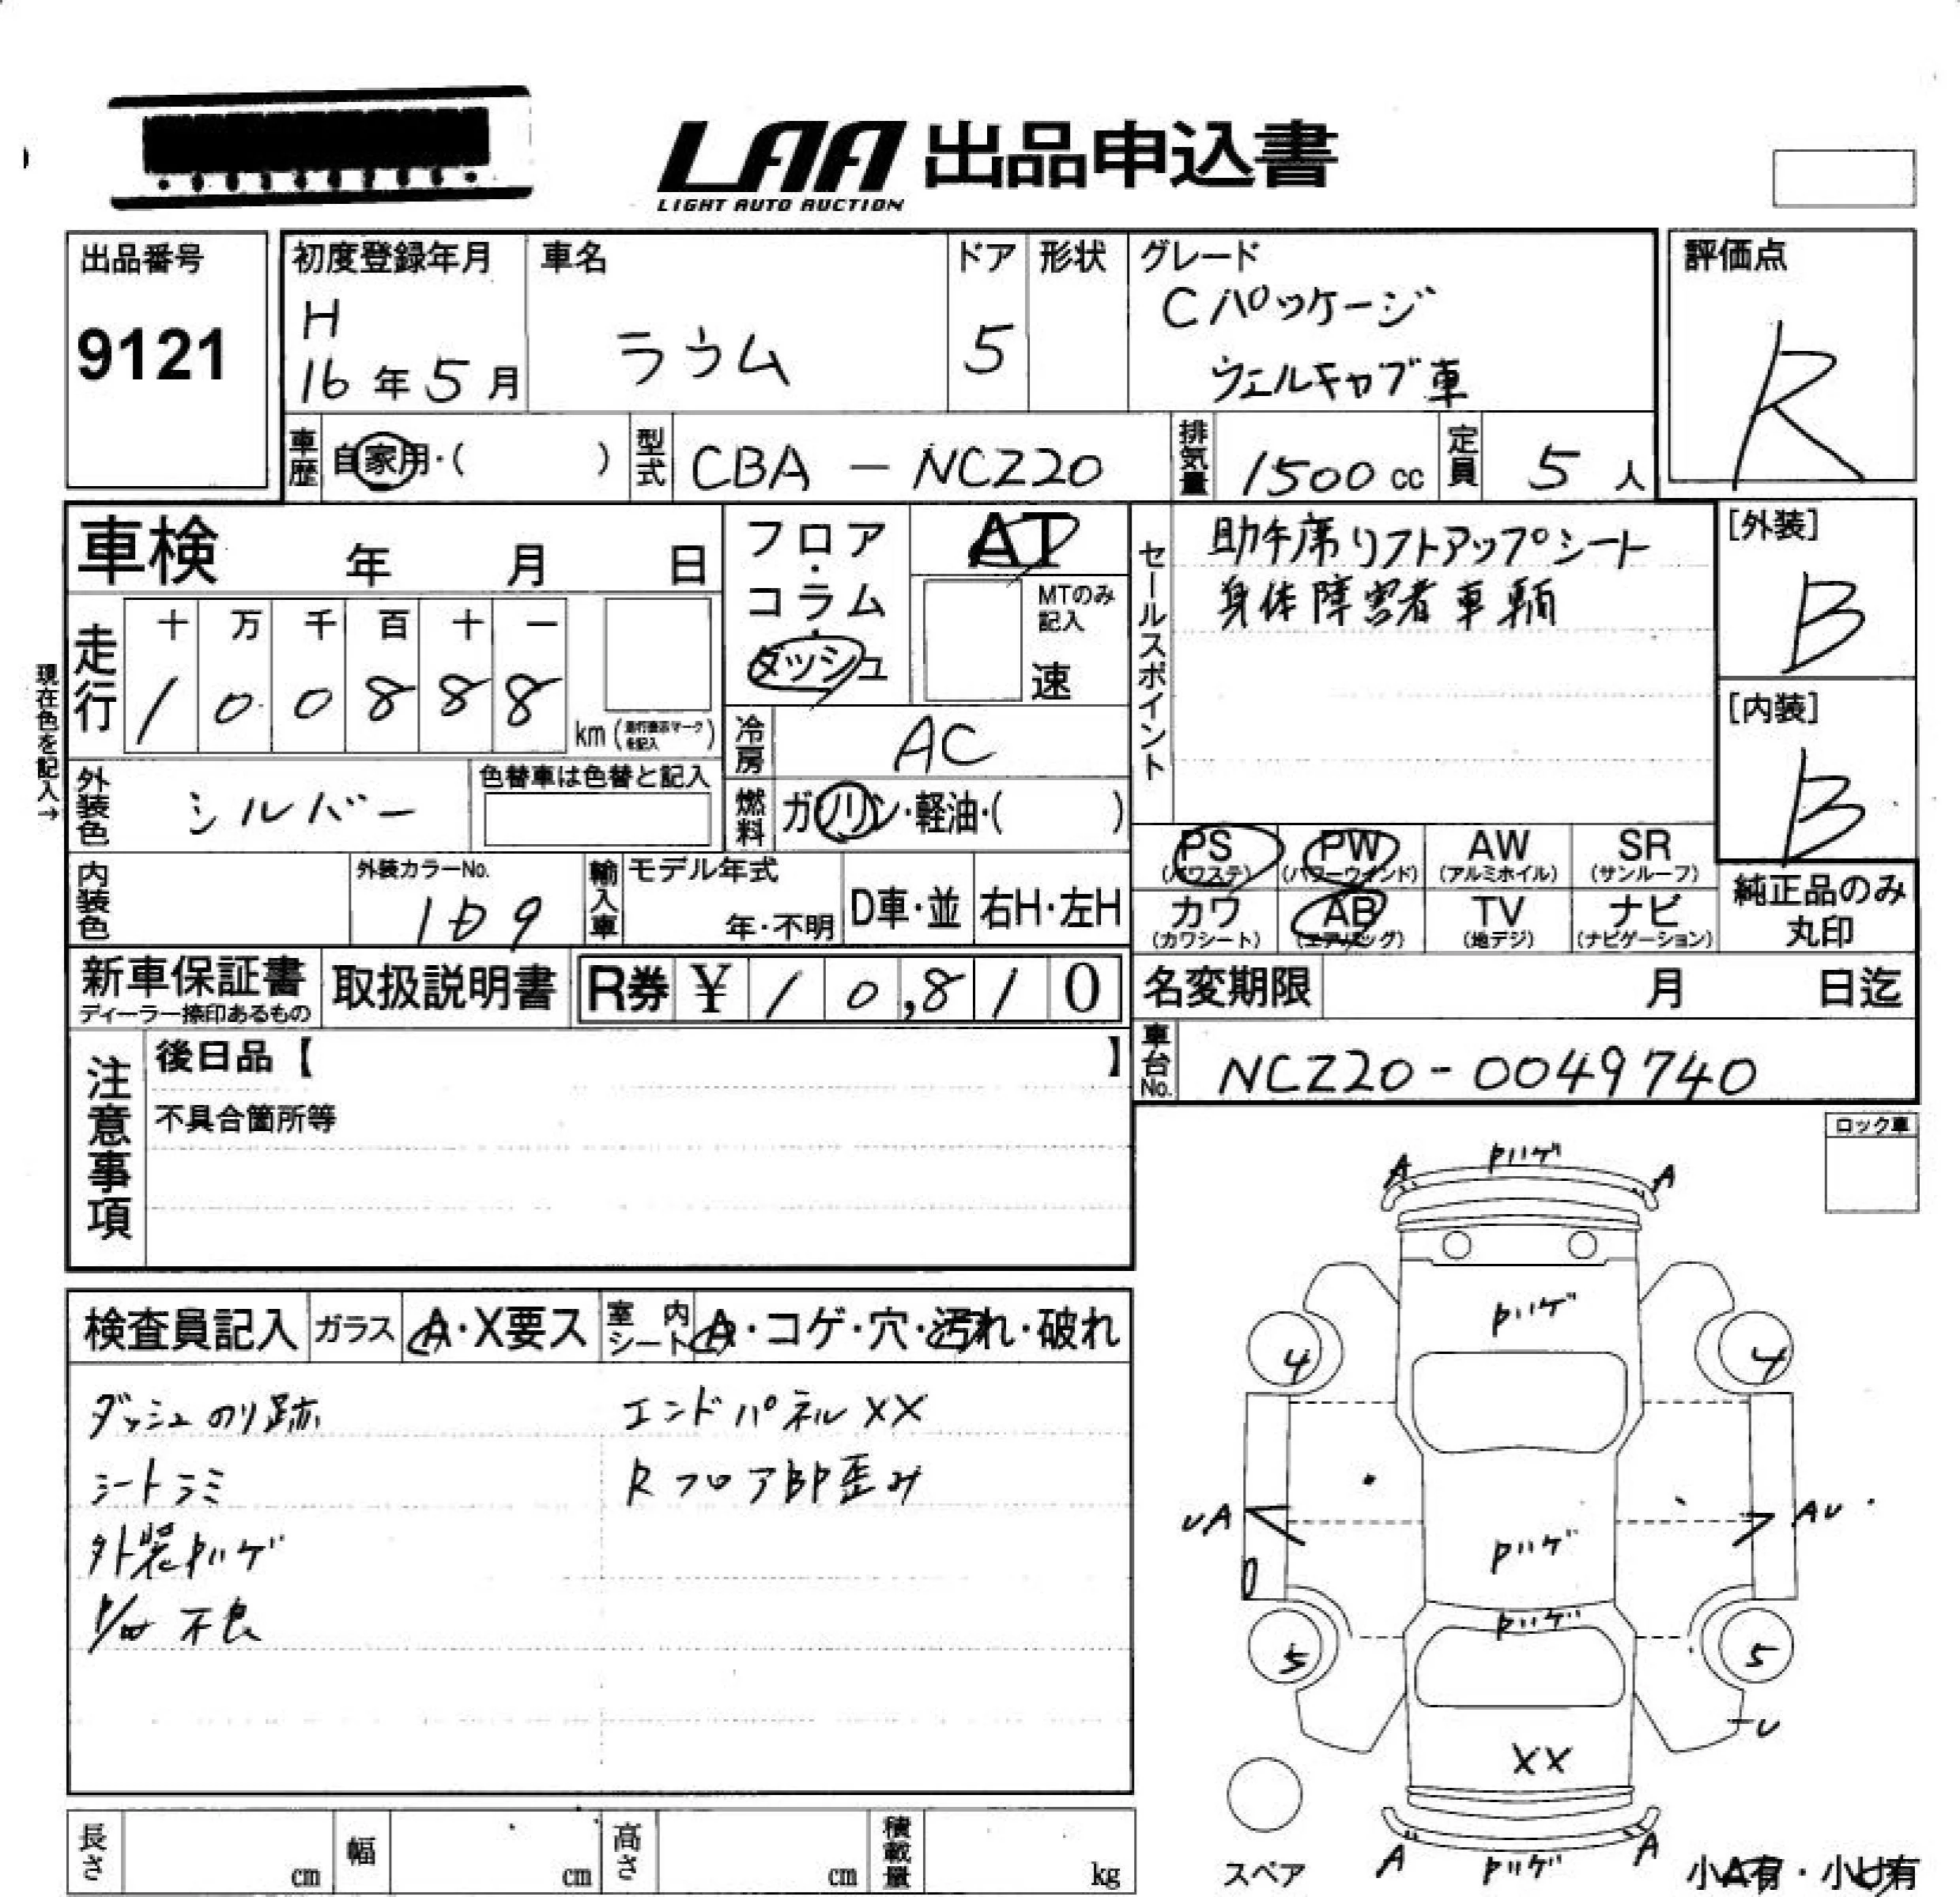 LAA 出品申込書
LIGHT AUTO AUCTION
出品番号
9121
初度登録年月
H
16年5月
車名
ラウム
ドア
5
形状
グレード
Cパッケージ
ウェルキャブ車
評価点
R
車歴 自家用・( )
型式 CBA-NCZ20
排気量 1500cc
定員 5人
車検 年 月 日
走行
十 万 千 百 十 一
1 0 0 8 8 8
km
現在色を記入→
外装色 シルバー
色替車は色替と記入
内装色
外装カラーNo.
1D9
輸入車
モデル年式
年・不明
D車・並
右H・左H
フロア・コラム・ダッシュ
AT
MTのみ記入
速
冷房 AC
燃料 ガソリン・軽油・( )
セールスポイント
助手席リフトアップシート
身体障害者車輌
[外装]
B
[内装]
B
PS (パワステ)
PW (パワーウインド)
AW (アルミホイル)
SR (サンルーフ)
カワ (カワシート)
AB (エアバッグ)
TV (地デジ)
ナビ (ナビゲーション)
純正品のみ丸印
新車保証書
ディーラー捺印あるもの
取扱説明書
R券 ¥10,810
名変期限 月 日迄
車台No. NCZ20-0049740
注意事項
後日品【 】
不具合箇所等
ロック車
検査員記入
ガラス A・X要ス
室内シート A・コゲ・穴・汚れ・破れ
ダッシュのり跡
シートシミ
外装Pハゲ
不良
エンドパネルXX
Rフロア部歪み
A Pハゲ A
Pハゲ
4 4
UA
AU
Pハゲ
Pハゲ
5 5
U
XX
A Pハゲ A
スペア
小A有・小U有
長さ cm
幅 cm
高さ cm
積載量 kg